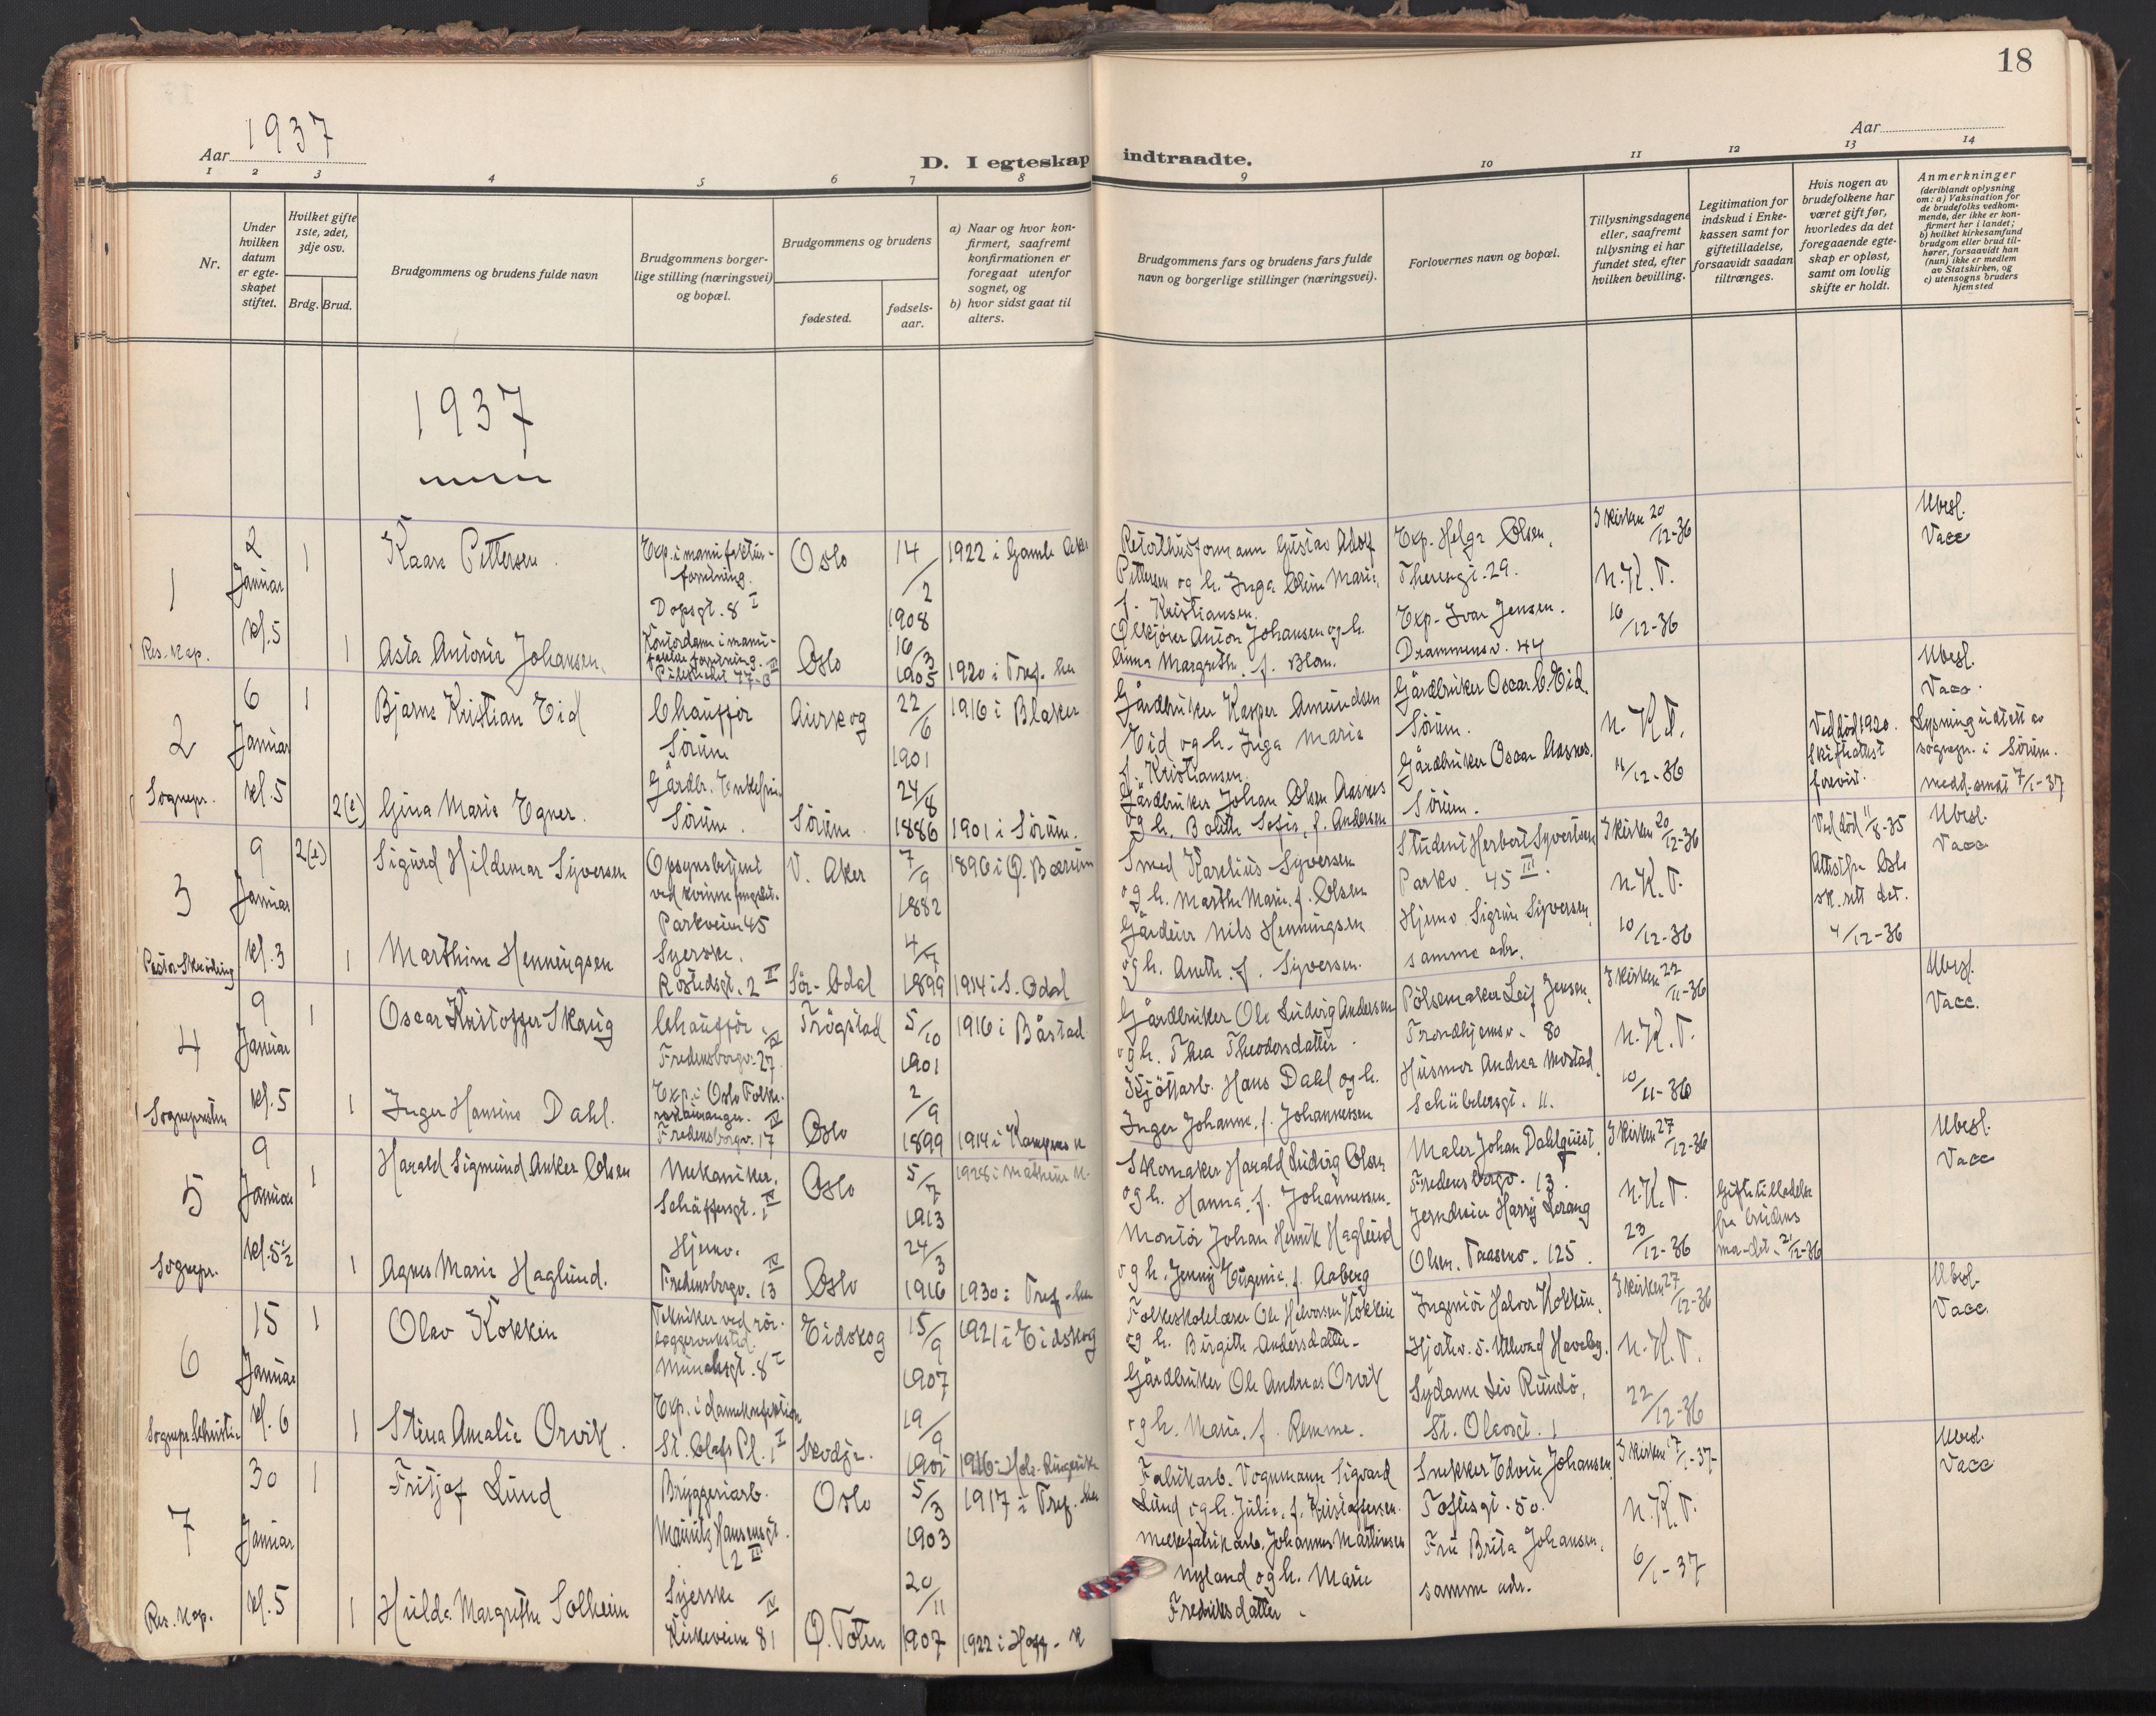 18
Aar 1937
Aar
D. I egteskap indtraadte.
1 2 3 4 5 6 7 8 9 10 11 12 13 14
Nr.
Under hvilken datum er egteskapet stiftet.
Hvilket gifte 1ste, 2det, 3dje osv.
Brdg. Brud.
Brudgommens og brudens fulde navn
Brudgommens borgerlige stilling (næringsvei) og bopæl.
Brudgommens og brudens
fødested.
fødselsaar.
a) Naar og hvor konfirmert, saafremt konfirmationen er foregaat utenfor sognet, og
b) hvor sidst gaat til alters.
Brudgommens fars og brudens fars fulde navn og borgerlige stillinger (næringsvei).
Forlovernes navn og bopæl.
Tillysningsdagene eller, saafremt tillysning ei har fundet sted, efter hvilken bevilling.
Legitimation for indskud i Enkekassen samt for giftetilladelse, forsaavidt saadan tiltrænges.
Hvis nogen av brudefolkene har været gift før, hvorledes da det foregaaende egteskap er opløst, samt om lovlig skifte er holdt.
Anmerkninger
(deriblandt oplysning om: a) Vaksination for de brudefolks vedkommende, der ikke er konfirmert her i landet;
b) hvilket kirkesamfund brudgom eller brud tilhører, forsaavidt han (hun) ikke er medlem av Statskirken, og
c) utensogns bruders hjemsted
1937
1
Res. Kap.
2 Januar kl. 5
1
Kaare Pettersen.
Exp. i manufakturforretning.
Dopsgt. 8 I
Oslo
14/2 1908
1922 i Gamle Aker
Retorthusformann Gustav Adolf Pettersen og h. Inga Oline Marie, f. Kristiansen.
Exp. Helge Olsen,
Theresgt. 29.
I kirken 20/12-36
N.K.T.
16/12-36
Ubesl.
Vacc
1
Asta Antonie Johansen.
Oslo
16/3 1905
1920 i Tref. ku
Anton Johansen og h. Anna Margrethe, f. Blom.
Exp. Ivar Jensen.
Drammensv. 44
2
Sognepr.
6 Januar kl. 5
1
Bjarne Kristian Eid
Chauffør
Sørum
Aurskog
22/6 1901
1916 i Blaker
Gårdbruker Kasper Amundsen Eid og h. Inga Marie f. Kristiansen.
Gårdbruker Oscar C. Eid.
Sørum.
N.K.T.
11/12-36
Ved død 1920.
Skifteattest forevist.
Ubesl.
Vacc.
Lysning utstett av sognepr. i Sørum.
medd. sendt 7/1-37
2(e)
Gina Marie Egner.
Gårdbr. Enkefru
Sørum.
Sørum
24/8 1886
1901 i Sørum.
Gårdbruker Johan Olsen Aasnes og h. Bolette Sofie, f. Andersen
Gårdbruker Oscar Aasnes.
Sørum.
3
Pastor
9 Januar kl. 3
2(e)
Sigurd Hildemar Syversen
Opsynsbetjent ved kvinnefengslet.
Parkveien 45
V. Aker
7/9 1882
1896 i Ø. Bærum
Smed Karelius Syversen og h. Marthe Marie, f. Olsen
Student Herbert Syvertsen
Parkv. 45 III.
I kirken 20/12-36
N.K.T.
10/12-36
Ved død 11/8-35
Attest fra Oslo sk.rett dat. 4/12-36
Ubesl.
Vacc
1
Marthine Henningsen
Syerske.
Rostedsgt. 2 II
Sør-Odal
4/7 1899
1914 i S. Odal
Gårdeier Nils Henningsen og h. Anethe, f. Syversen.
Hjemv. Sigrun Syversen,
samme adr.
4
Sognepresten
9 Januar kl. 5
1
Oscar Kristoffer Skaug
Chauffør.
Fredensborgv. 27 IV
Trøgstad
5/10 1901
1916 i Båstad
Gårdbruker Ole Ludvig Andersen og h. Thea Theodorsdatter.
Pølsemaker Leif Jensen,
Trondhjemsv. 80
I kirken 22/11-36
N.K.T.
10/11-36
Ubesl.
Vacc.
1
Inger Hansine Dahl.
Exp. i Oslo Folke-
Fredensborgv. 17 IV
Oslo
2/9 1899
1914 i Kampens k
Kjøttarb. Hans Dahl og h. Inger Johanne, f. Johannessen
Husmor Andrea Mostad.
Schüblersgt. 11.
5
Sognepr.
9 Januar kl. 5 1/2
1
Harald Sigmund Anker Olsen
Mekaniker.
Schäffersgt. 1 IV
Oslo
5/7 1913
1928 i Matheus k.
Skomaker Harald Ludvig Olsen og h. Hanna, f. Johannessen.
Maler Johan Dahlquist,
Fredensborgv. 13.
I kirken 27/12-36
N.K.T.
23/12-36
Giftetilladelse fra brudens mor dat. 21/12-36
Ubesl.
Vacc
1
Agnes Marie Haglund.
Hjemv.
Fredensborgv. 13 IV
Oslo
24/3 1916
1930 i Tref. ku
Montør Johan Henrik Haglund og h. Jenny Eugenie, f. Aaberg
Jerndreier Harry Lorang Olsen. Taasenv. 125.
6
Sognepr. Christie
15 Januar kl. 6
1
Olav Kokkin
Tekniker ved rørleggerverksted.
Munchsgt. 8 I
Eidskog
15/9 1907
1921 i Eidskog
Folkeskolelærer Ole Halvorsen Kokkin og h. Birgitte Andersdatter.
Ingeniør Halvor Kokkin,
Hjortv. 5. Ullevål Haveby.
I kirken 27/12-36
N.K.T.
22/12-36
Ubesl.
Vacc.
1
Stina Amalie Orvik.
Exp. i damekonfektion
St. Olafs Pl. 1 I
Skodje.
19/9
1916 i Hole-Ringerike
Gårdbruker Ole Andreas Orvik og h. Marie, f. Remme.
Sydame Liv Rundö,
St. Olavsgt. 1
7
Res. Kap.
30 Januar kl. 5
1
Fritjof Lund
Bryggeriarb.
Mauritz Hansensgt. 2 III
Oslo
5/3 1903
1917 i Tref. ku
Fabrikarb. Vognmann Sigvard Lund og h. Julie, f. Kristoffersen.
Snekker Edvin Johansen
Toftesgt. 50.
I kirken 17/1-37
N.K.T.
6/1-37
Ubesl.
Vacc
1
Hulda Margrethe Solheim
Syerske
Kirkeveien 81 IV
Ø. Toten
20/11 1907
1922 i Hoff-k
Melkefabrikarb. Johannes Martinsen Nyland og h. Marie Fredriksdatter.
Fru Brita Johansen,
samme adr.